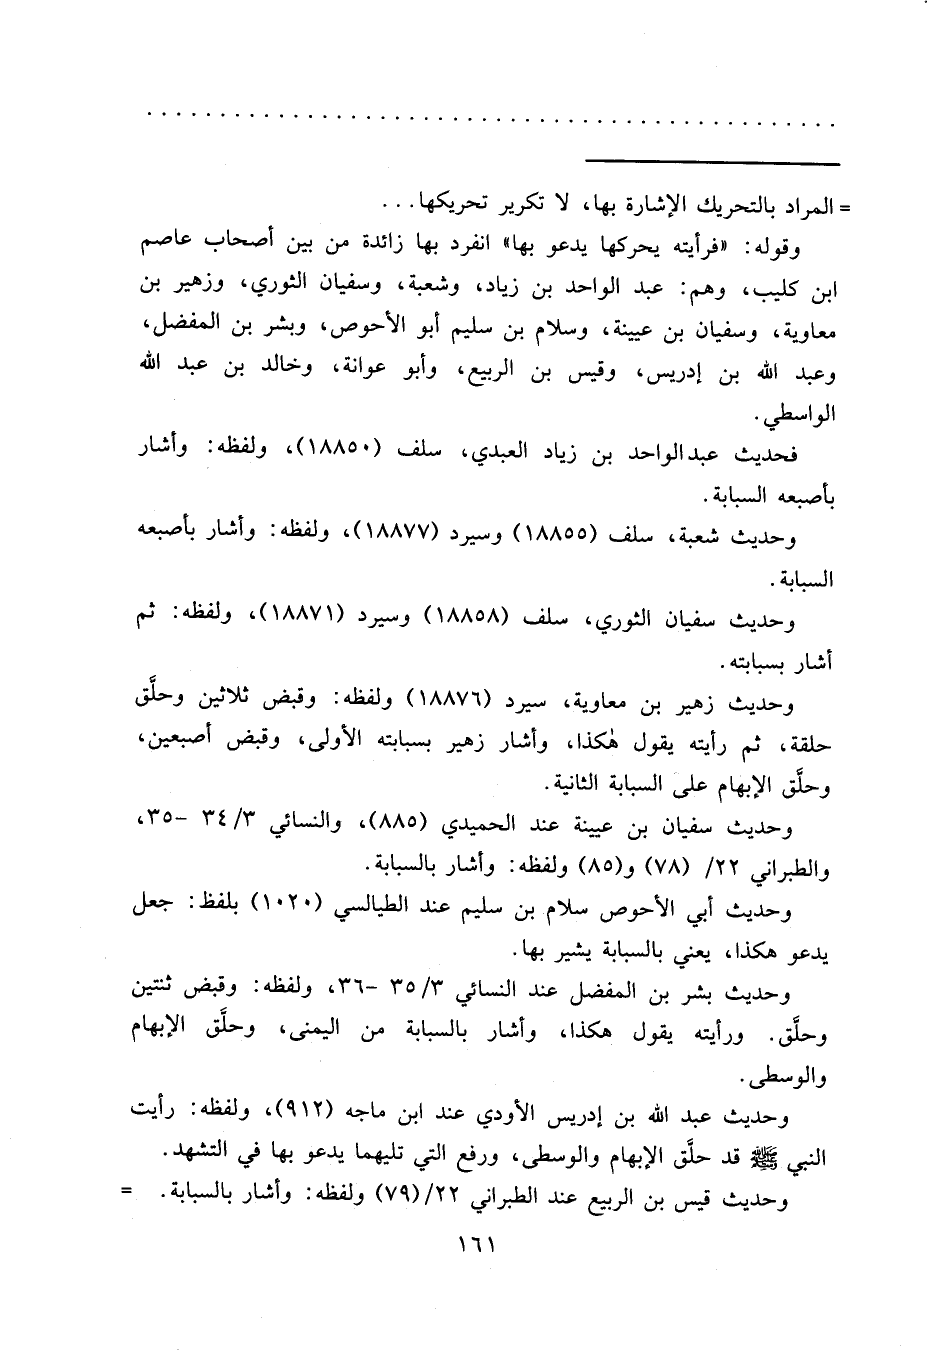 = المراد بالتحريك الإشارة بها، لا تكرير تحريكها...
وقوله: «فرأيته يحركها يدعو بها» انفرد بها زائدة من بين أصحاب عاصم
ابن كليب، وهم: عبد الواحد بن زياد، وشعبة، وسفيان الثوري، وزهير بن
معاوية، وسفيان بن عيينة، وسلام بن سليم أبو الأحوص، وبشر بن المفضل،
وعبد الله بن إدريس، وقيس بن الربيع، وأبو عوانة، وخالد بن عبد الله
الواسطي.
فحديث عبدالواحد بن زياد العبدي، سلف (١٨٨٥٠)، ولفظه: وأشار
بأصبعه السبابة.
وحديث شعبة، سلف (١٨٨٥٥) وسيرد (١٨٨٧٧)، ولفظه: وأشار بأصبعه
السبابة.
وحديث سفيان الثوري، سلف (١٨٨٥٨) وسيرد (١٨٨٧١)، ولفظه: ثم
أشار بسبابته.
وحديث زهير بن معاوية، سيرد (١٨٨٧٦) ولفظه: وقبض ثلاثين وحلَّق
حلقة، ثم رأيته يقول هٰكذا، وأشار زهير بسبابته الأولى، وقبض أصبعين،
وحلَّق الإبهام على السبابة الثانية.
وحديث سفيان بن عيينة عند الحميدي (٨٨٥)، والنسائي ٣/ ٣٤ -٣٥،
والطبراني ٢٢/ (٧٨) و(٨٥) ولفظه: وأشار بالسبابة.
وحديث أبي الأحوص سلام بن سليم عند الطيالسي (١٠٢٠) بلفظ: جعل
يدعو هكذا، يعني بالسبابة يشير بها.
وحديث بشر بن المفضل عند النسائي ٣/ ٣٥ -٣٦، ولفظه: وقبض ثنتين
وحلَّق. ورأيته يقول هكذا، وأشار بالسبابة من اليمنى، وحلَّق الإبهام
والوسطى.
وحديث عبد الله بن إدريس الأودي عند ابن ماجه (٩١٢)، ولفظه: رأيت
النبي ﷺ قد حلَّق الإبهام والوسطى، ورفع التي تليهما يدعو بها في التشهد.
وحديث قيس بن الربيع عند الطبراني ٢٢/(٧٩) ولفظه: وأشار بالسبابة. =
١٦١